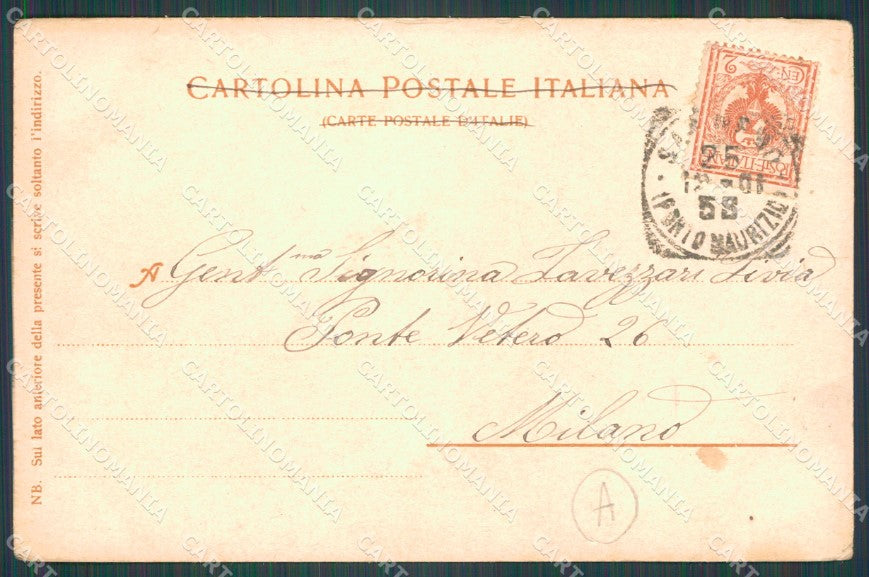 CARTOLINA POSTALE ITALIANA
(CARTE POSTALE D'ITALIE)
A Gent.ma Signorina Lavezzari Livia
Ponte Vetero 26
Milano
NB. Sul lato anteriore della presente si scrive soltanto l'indirizzo.
CEN. 2
POSTE ITALIANE
25
01
(PORTO MAURIZIO)
A
CARTOLINOMANIA